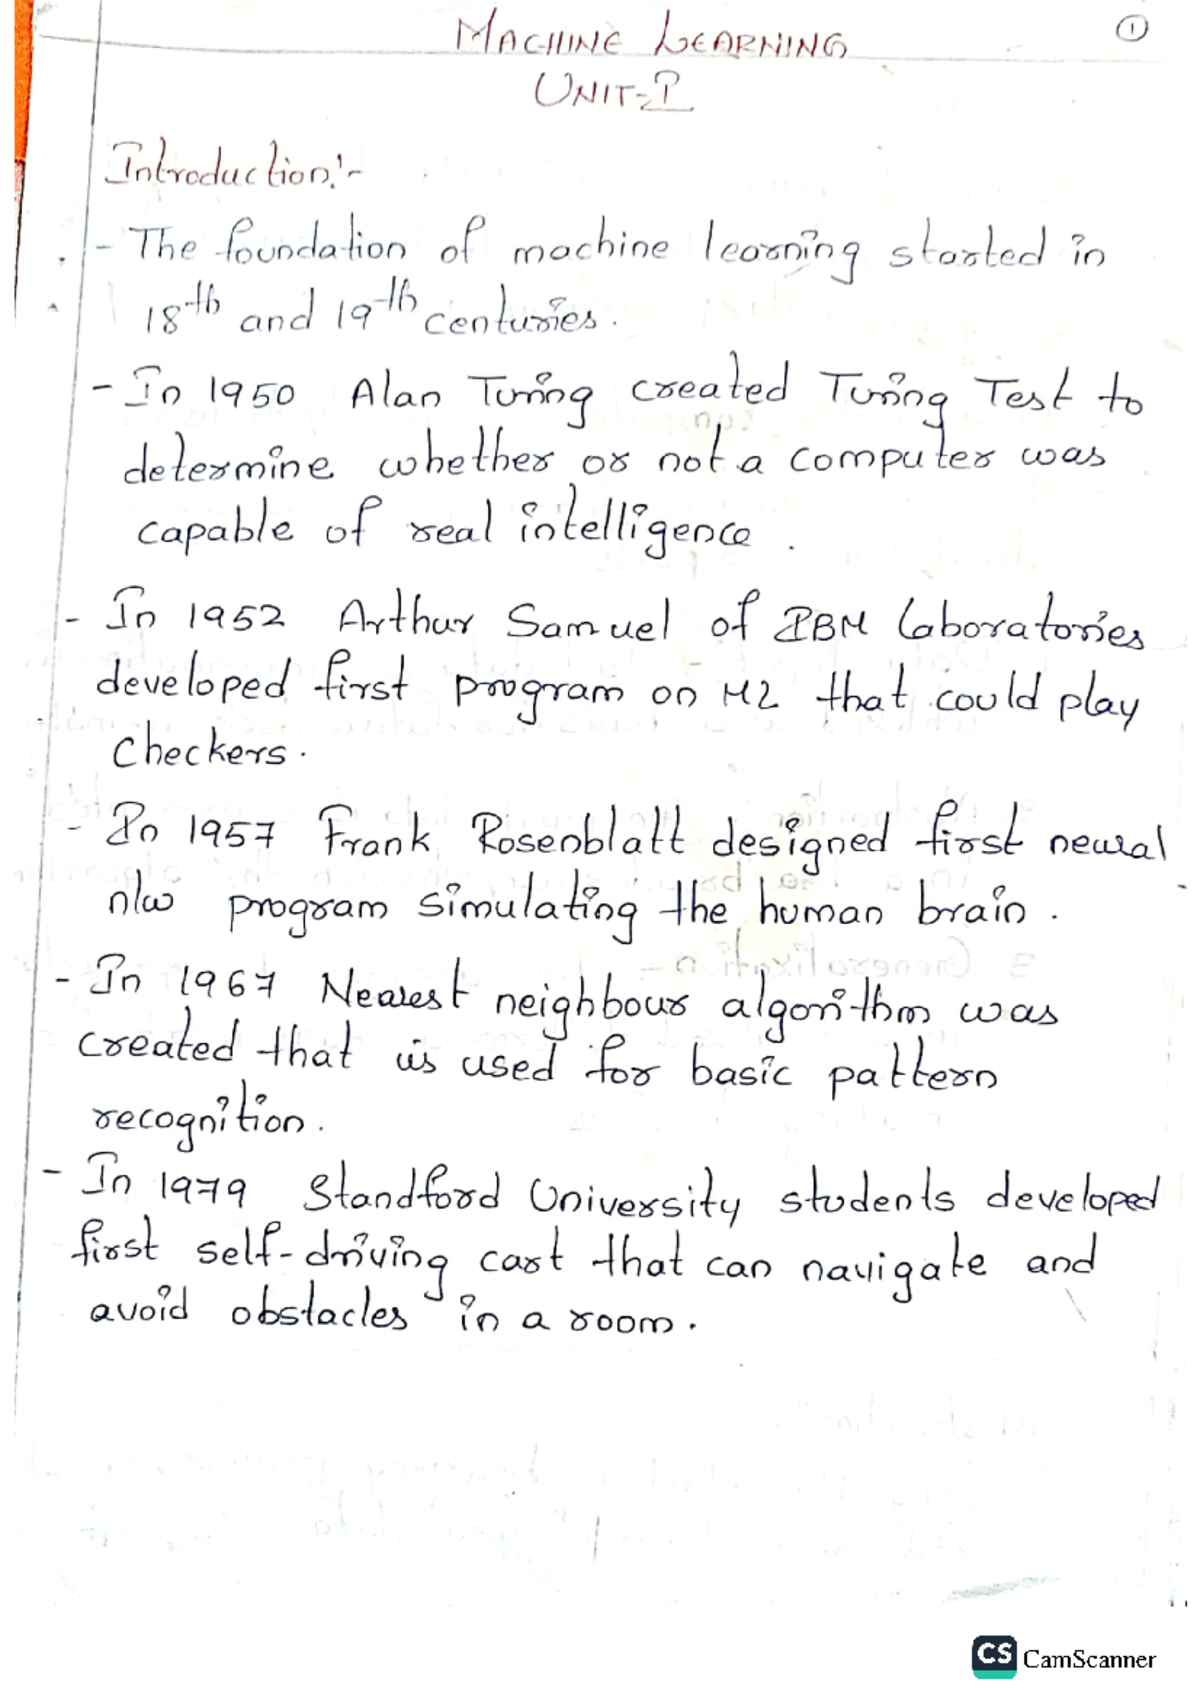 MACHINE LEARNING
1
UNIT-I
Introduction:-
- The foundation of machine learning started in
18th and 19th centuries.
- In 1950 Alan Turing created Turing Test to
determine whether or not a computer was
capable of real intelligence.
- In 1952 Arthur Samuel of IBM Laboratories
developed first program on ML that could play
Checkers.
- In 1957 Frank Rosenblatt designed first neural
n/w program simulating the human brain.
- In 1967 Nearest neighbour algorithm was
created that is used for basic pattern
recognition.
- In 1979 Standford University students developed
first self-driving cart that can navigate and
avoid obstacles in a room.
CS CamScanner